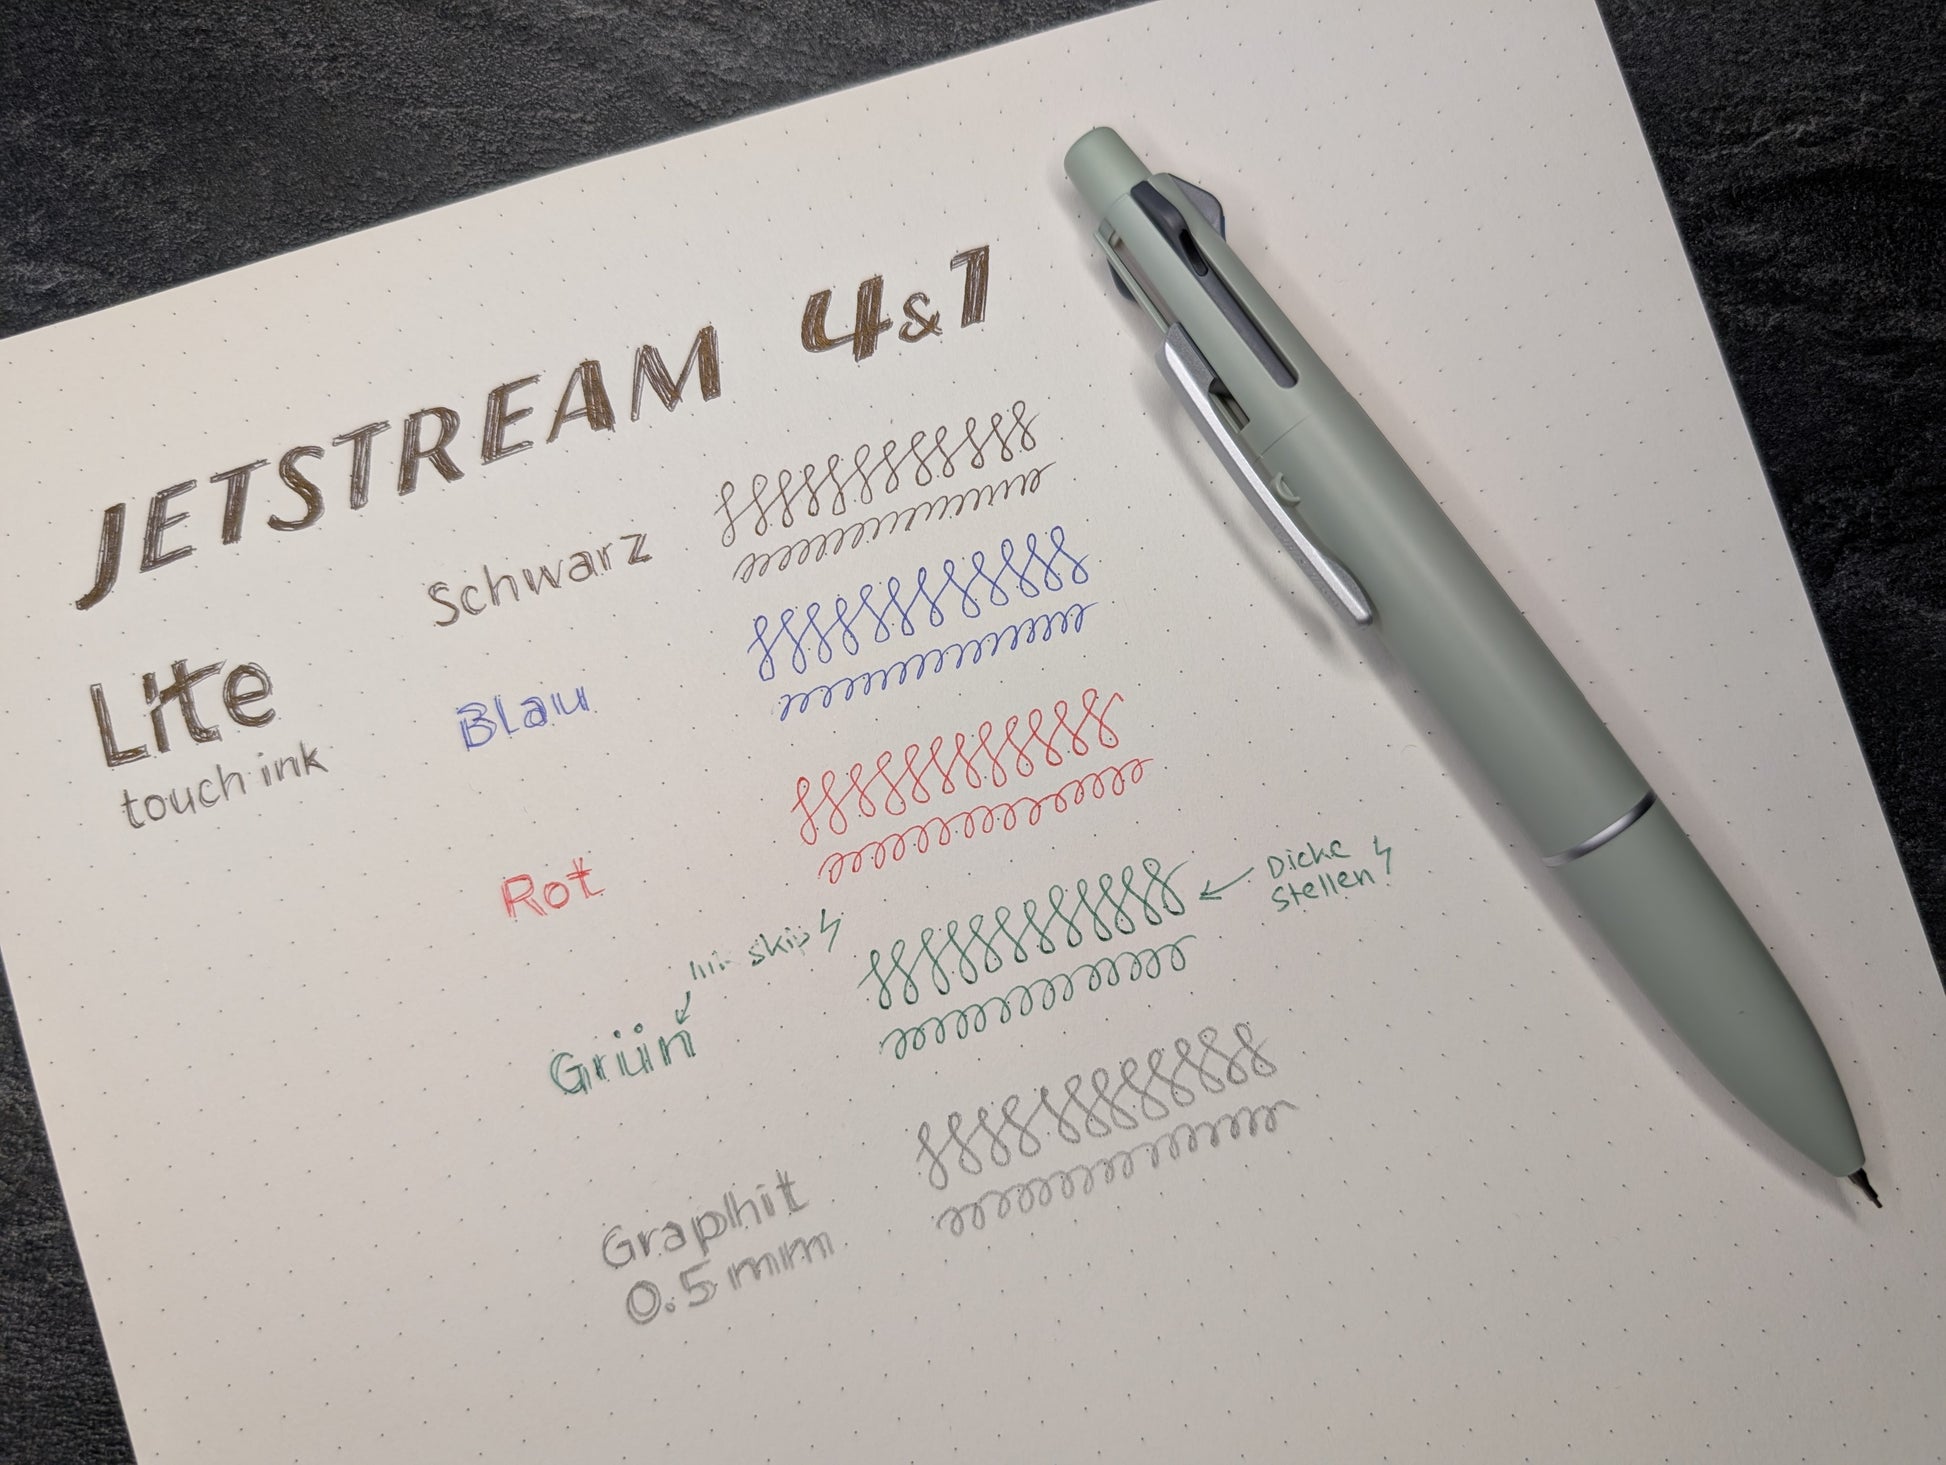 JETSTREAM 4&1
Lite
touch ink
Schwarz
Blau
Rot
skip
Grün
Dicke
stellen
Graphit
0.5 mm